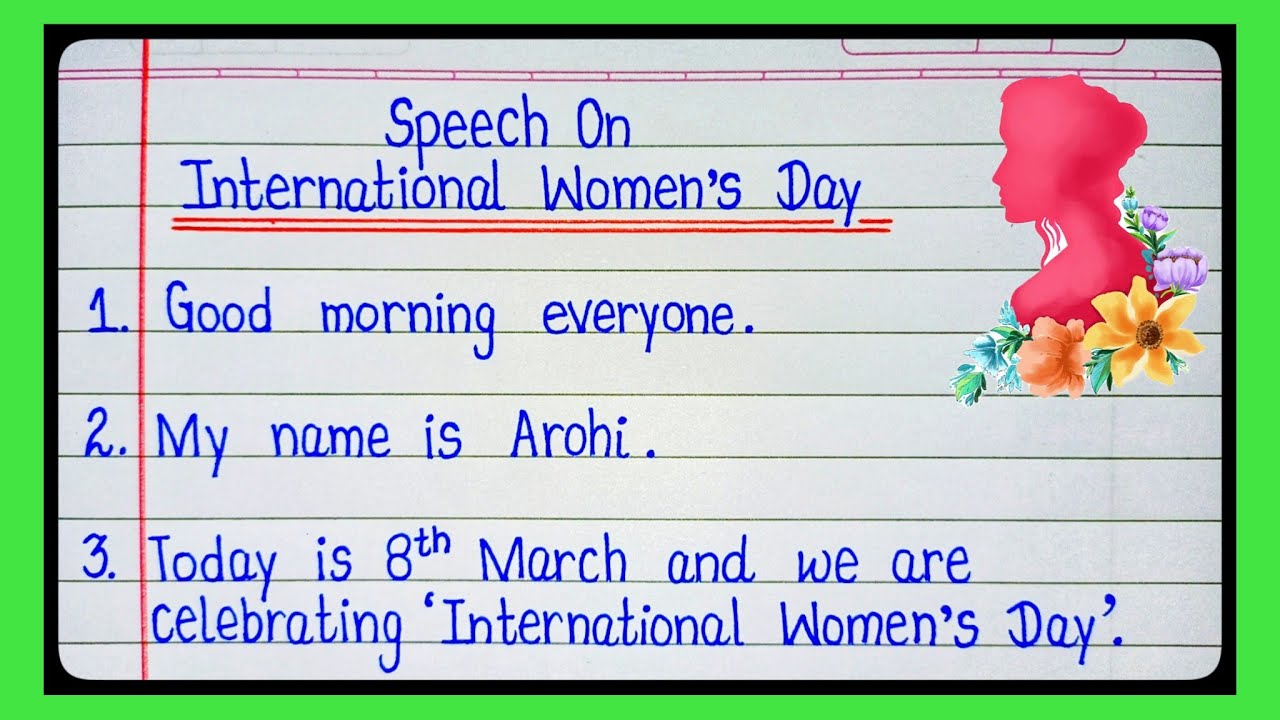 Speech On
International Women's Day
1. Good morning everyone.
2. My name is Arohi.
3. Today is 8th March and we are
celebrating 'International Women's Day'.